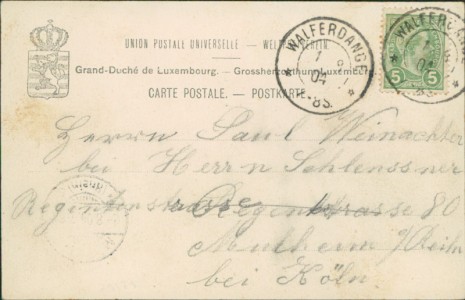 UNION POSTALE UNIVERSELLE — WELTPOSTVEREIN.
Grand-Duché de Luxembourg. — Grossherzogthum Luxemburg.
CARTE POSTALE. — POSTKARTE.
WALFERDANGE
WALFERDANGE
5 5
Herrn Paul Weinachter
bei Herrn Schlenssner
Regentenstrasse 80
Mulheim a/Rhein
bei Köln.